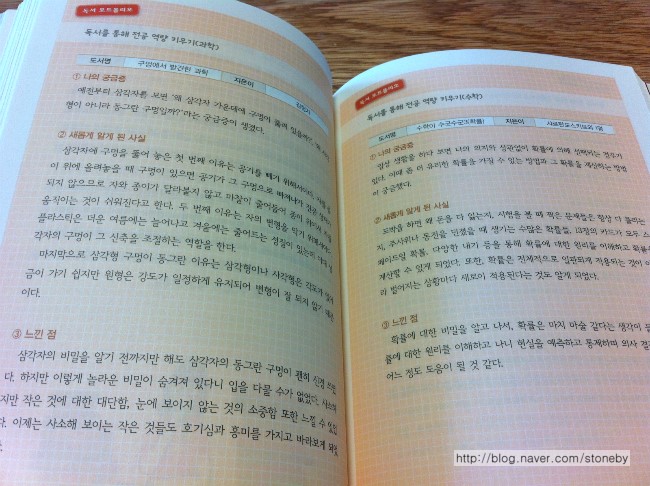 독서 포트폴리오
독서를 통해 전공 역량 키우기(과학)
도서명 구멍에서 발견한 과학 지은이
① 나의 궁금증
예전부터 삼각자를 보면 '왜 삼각자 가운데에 구멍이
형이 아니라 동그란 구멍일까?'라는 궁금증이 생겼다.
② 새롭게 알게 된 사실
삼각자에 구멍을 뚫어 놓은 첫 번째 이유는 공기를 빼기 위해서이다.
이 위에 올려놓을 때 구멍이 있으면 공기가 그 구멍으로 빠져나가
되지 않으므로 자와 종이가 달라붙지 않고 마찰이 줄어들어 종이 위에서
움직이는 것이 쉬워진다고 한다. 두 번째 이유는 자의 변형을 막기 위해서이다.
플라스틱은 더운 여름에는 늘어나고 겨울에는 줄어드는 성질이 있는데
각자의 구멍이 그 신축을 조절하는 역할을 한다.
마지막으로 삼각형 구멍이 동그란 이유는 삼각형이나 사각형은 각도가
금이 가기 쉽지만 원형은 강도가 일정하게 유지되어 변형이 잘 되지 않기
이다.
③ 느낀 점
삼각자의 비밀을 알기 전까지만 해도 삼각자의 동그란 구멍이 괜히 신경
다. 하지만 이렇게 놀라운 비밀이 숨겨져 있다니 입을 다물 수가 없었다. 사소해
지만 작은 것에 대한 대단함, 눈에 보이지 않는 것의 소중함 또한 느낄 수 있었
다. 이제는 사소해 보이는 작은 것들도 호기심과 흥미를 가지고 바라보게
독서 포트폴리오
독서를 통해 전공 역량 키우기(수학)
도서명 수학이 수군수군2(확률) 지은이 샤르탄 포스키트
① 나의 궁금증
일상 생활을 하다 보면 나의 의지와 상관없이 확률에 의해 선택되는 경우가
있다. 이때 좀 더 유리한 확률을 가질 수 있는 방법과 그 확률을 계산하는 방법
이 궁금했다.
② 새롭게 알게 된 사실
도박을 하면 왜 운을 다 잃는지, 시험을 볼 때 찍은 문제들은 항상 다 틀리는
지, 주사위나 동전을 던졌을 때 생기는 수많은 확률들, 13장의 카드가 모두 스
페이드일 확률, 다양한 내기 등을 통해 확률에 대한 원리를 이해하고 확률을
계산할 수 있게 되었다. 또한, 확률은 전체적으로 일관되게 적용되는 것이 아니
라 벌어지는 상황마다 새로이 적용된다는 것도 알게 되었다.
③ 느낀 점
확률에 대한 비밀을 알고 나서, 확률은 마치 마술 같다는 생각이
률에 대한 원리를 이해하고 나니 현실을 예측하고 통제하며 의사 결
어느 정도 도움이 될 것 같다.
http://blog.naver.com/stoneby